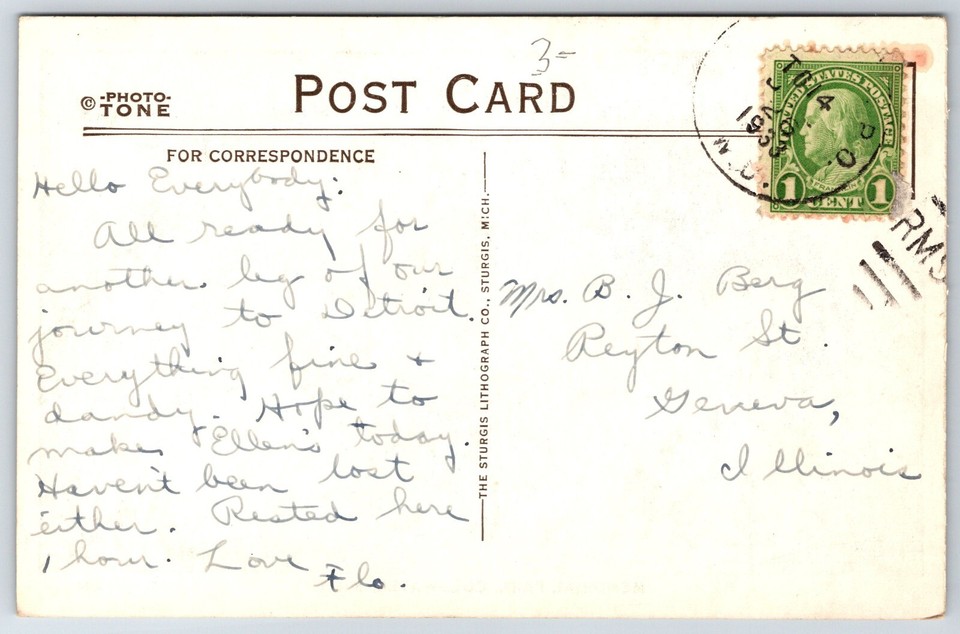 3-
©-PHOTO-
TONE
POST CARD
FOR CORRESPONDENCE
Hello Everybody:
All ready for
another leg of our
journey to Detroit.
Everything fine +
dandy. Hope to
make Ellen's today.
Haven't been lost
either. Rested here
1 hour. Love
Flo.
THE STURGIS LITHOGRAPH CO., STURGIS, MICH.
UNITED STATES POSTAGE
FRANKLIN
1 CENT 1
R.P.O.
RMS
Mrs. B. J. Berg
Peyton St.
Geneva,
Illinois